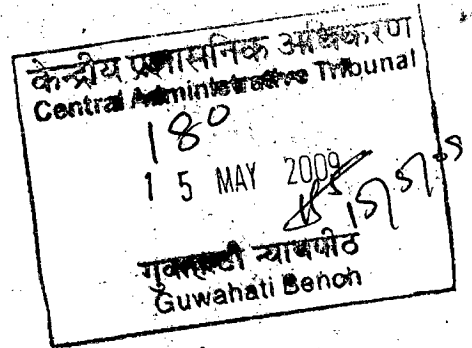 केन्द्रीय प्रशासनिक अधिकरण
Central Administrative Tribunal
180
15 MAY 2009
15/5/09
गुवाहाटी न्यायपीठ
Guwahati Bench